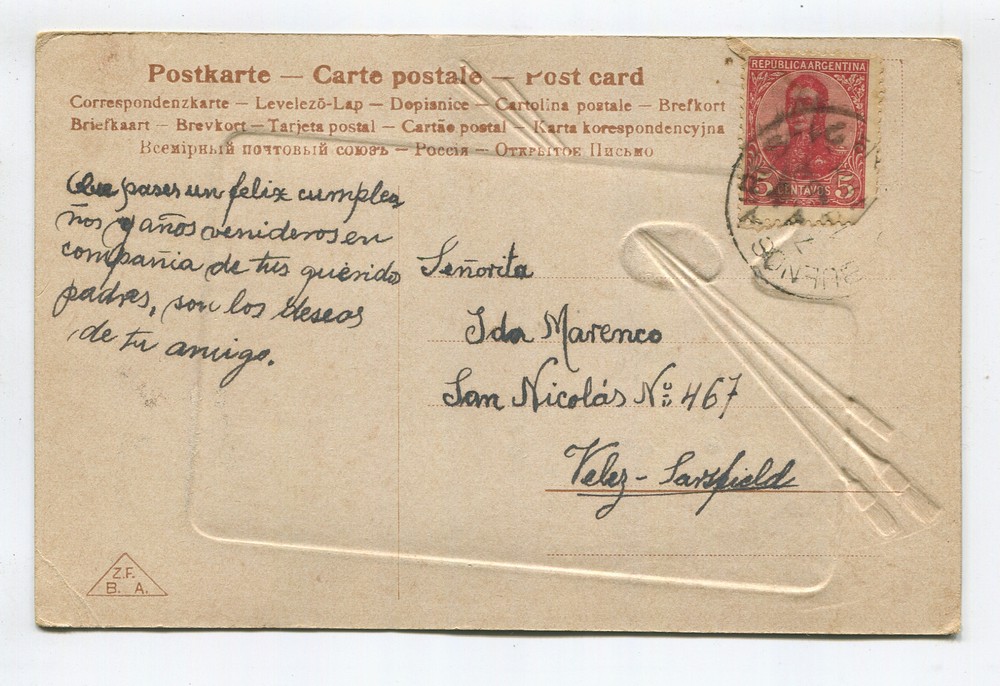 Postkarte — Carte postale — Post card
Correspondenzkarte — Levelező-Lap — Dopisnice — Cartolina postale — Brefkort
Briefkaart — Brevkort — Tarjeta postal — Cartão postal — Karta korespondencyjna
Всемірный почтовый союзъ — Россія — Открытое Письмо
REPÚBLICA ARGENTINA
5 CENTAVOS 5
BUENOS
Que pases un feliz cumplea
ños y años venideros en
compañia de tus queridos
padres, son los deseos
de tu amigo.
Señorita
Ida Marenco
San Nicolás No: 467
Velez-Sarsfield
Z.F.
B. A.